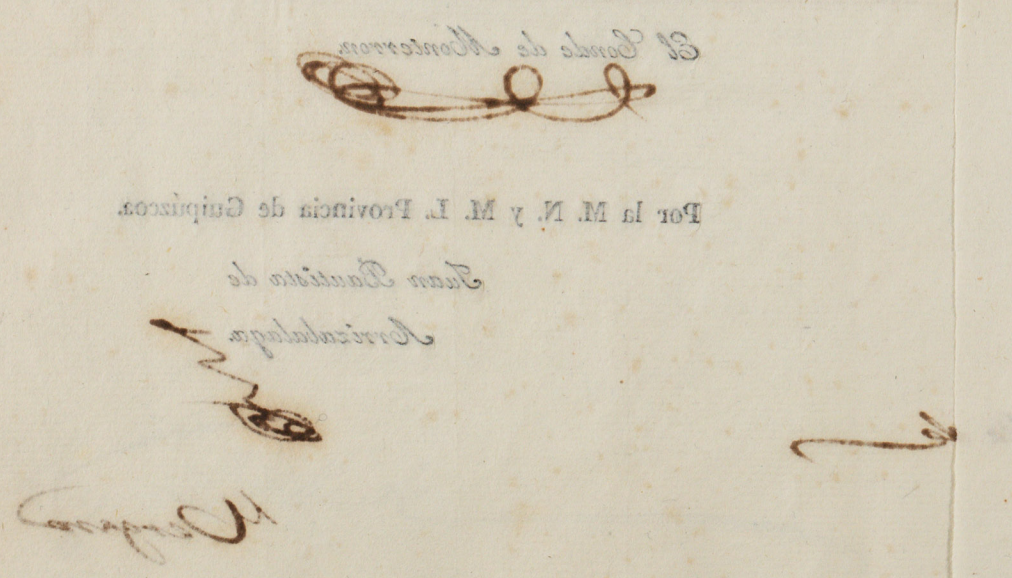 El Conde de Monterron.
Por la M. N. y M. L. Provincia de Guipúzcoa.
Juan Bautista de
Arrizabalaga.
Vergara